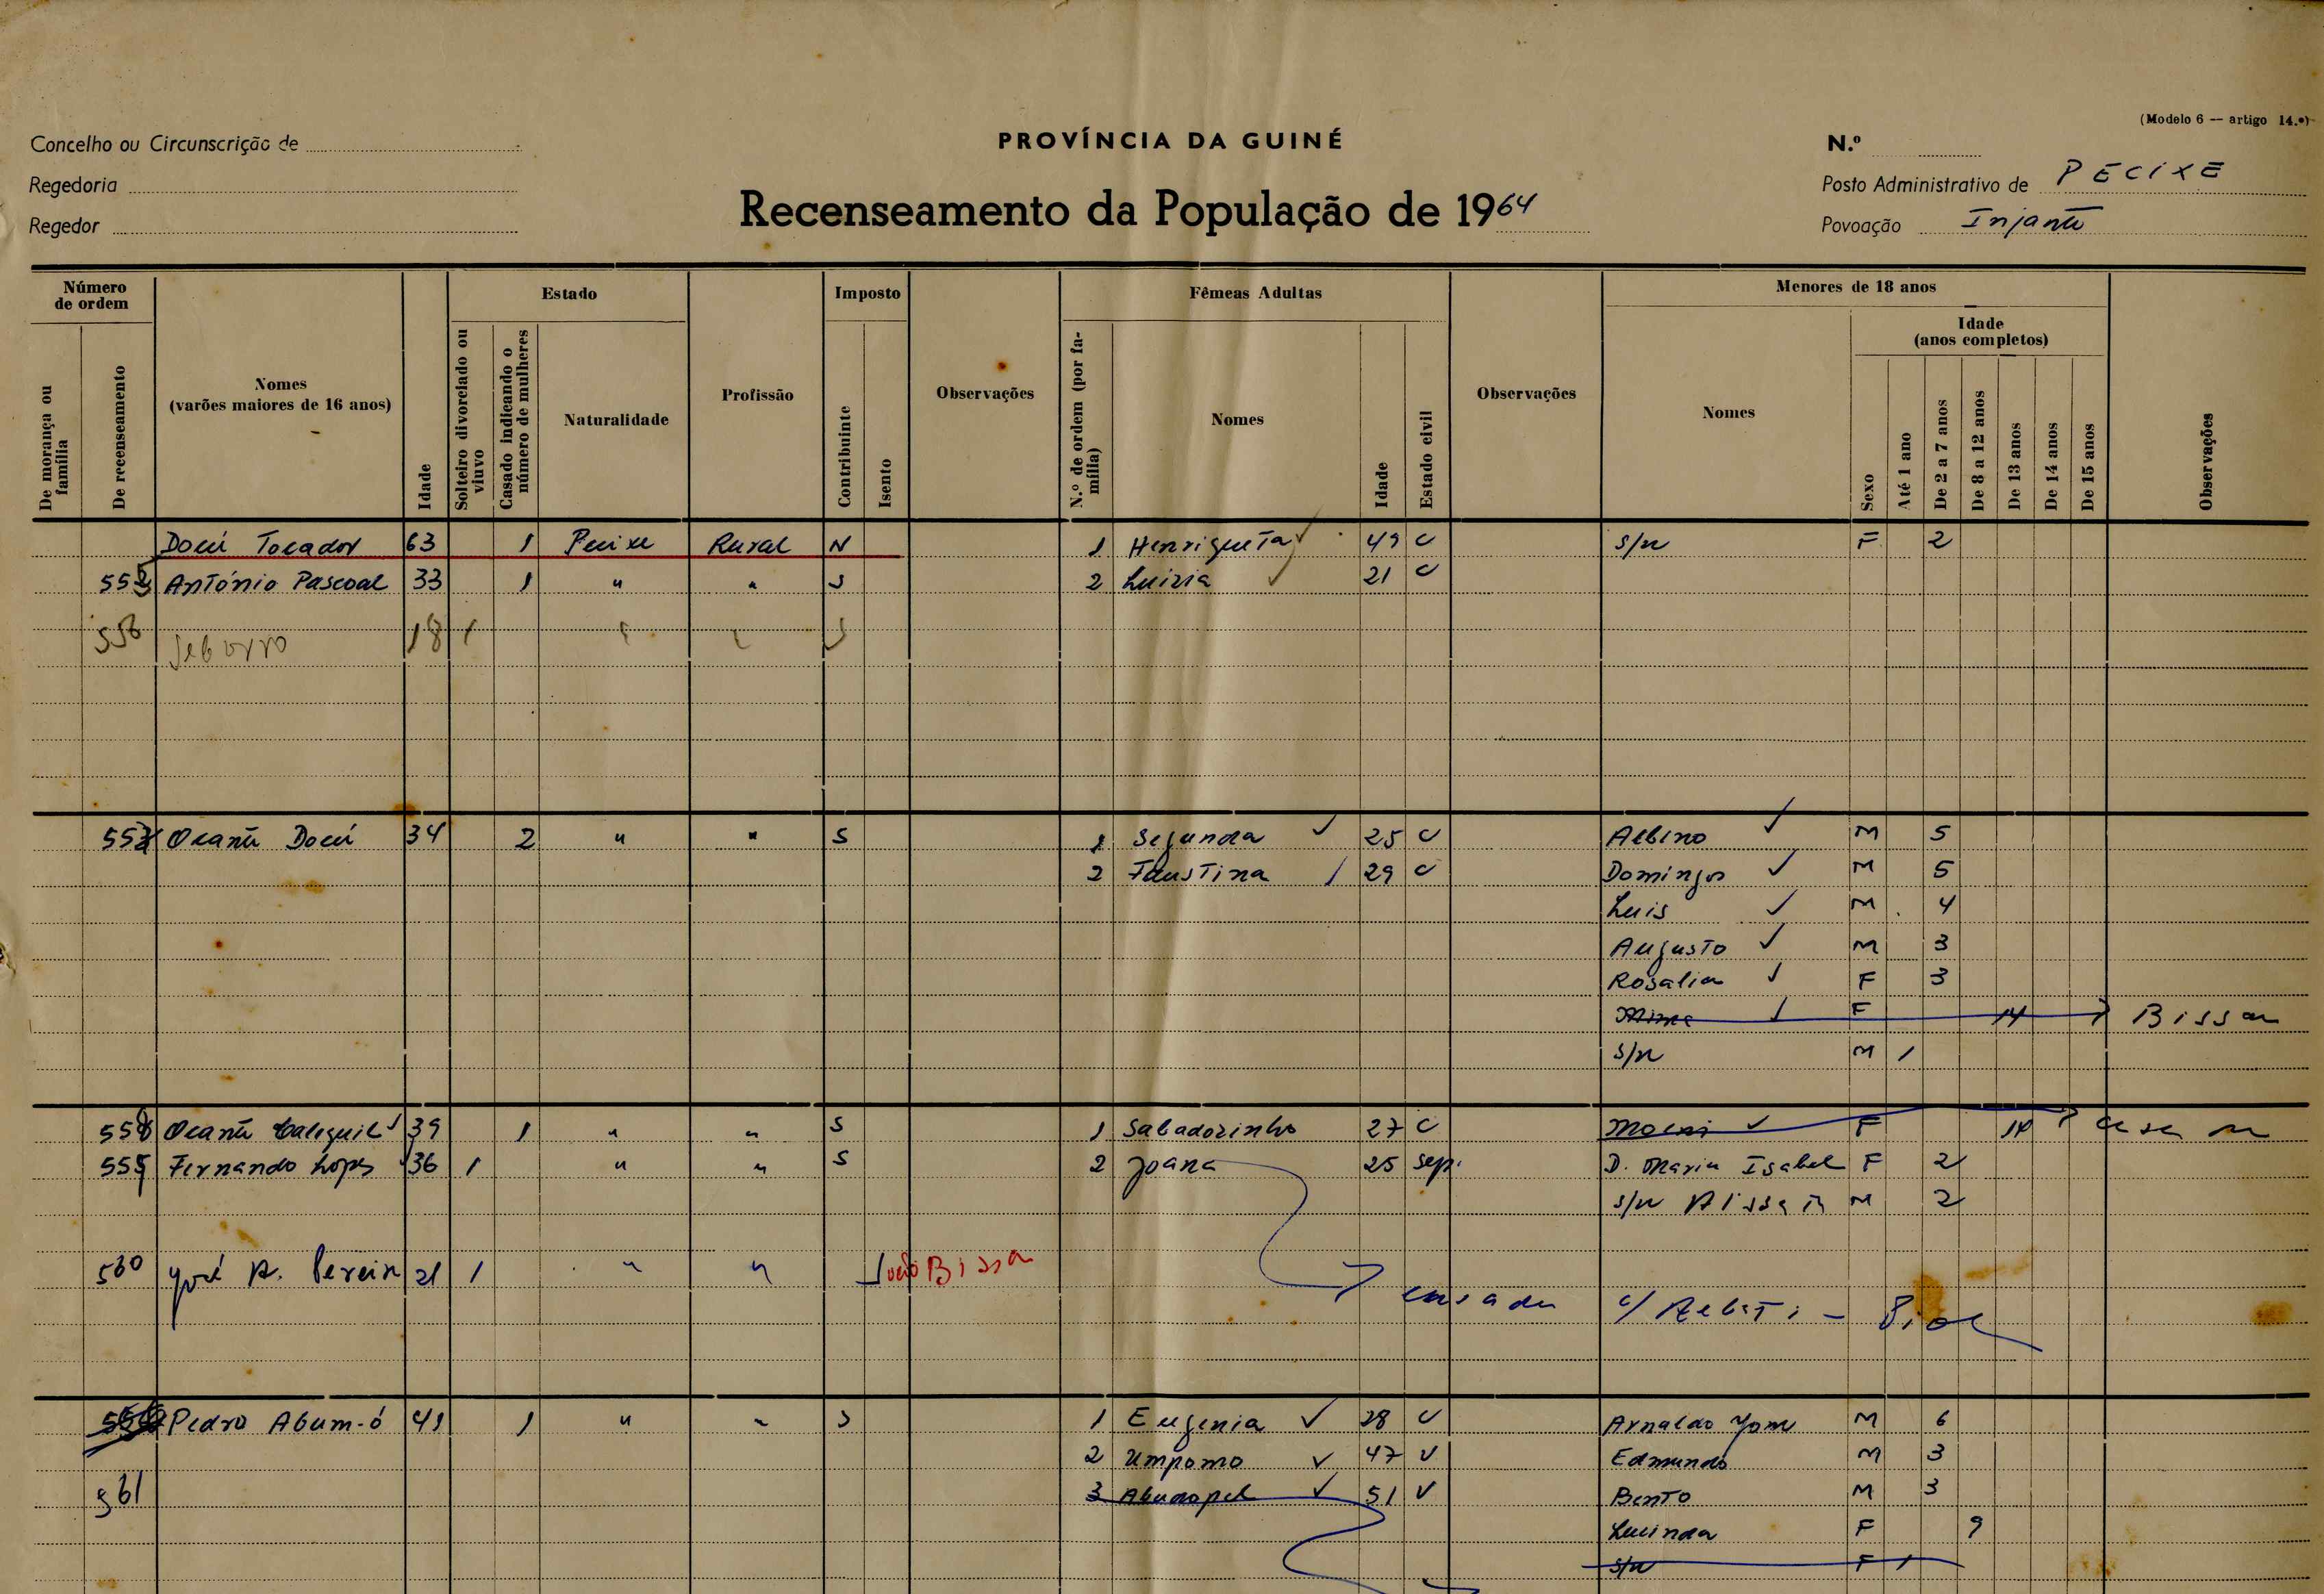 (Modelo 6 — artigo 14.º)
Concelho ou Circunscrição de
PROVÍNCIA DA GUINÉ
N.º
Regedoria
Posto Administrativo de PECIXE
Recenseamento da População de 1964
Regedor
Povoação Injante
Número de ordem
Estado
Imposto
Fêmeas Adultas
Menores de 18 anos
Idade (anos completos)
De morança ou família
De recenseamento
Nomes (varões maiores de 16 anos)
Idade
Solteiro divorciado ou viuvo
Casado indicando o número de mulheres
Naturalidade
Profissão
Contribuinte
Isento
Observações
N.º de ordem (por família)
Nomes
Idade
Estado civil
Observações
Nomes
Sexo
Até 1 ano
De 2 a 7 anos
De 8 a 12 anos
De 13 anos
De 14 anos
De 15 anos
Observações
Docú Tocador 63 1 Pecixe Rural N 1 Henriqueta 49 C s/n F 2
555 António Pascoal 33 1 " " S 2 Luizia 21 C
556 18 1 " " S
Ocante Docú 34 2 " " S 1 Segunda 25 C Albino M 5
2 Faustina 29 C Domingos M 5
Luis M 4
Augusto M 3
Rosalia F 3
F 14 Bissau
s/n M 1
558 Ocante 39 1 " " S 1 Sabadozinho 27 C F 14
559 Fernando Lopes 36 1 " " S 2 Joana 25 sep. D. Maria Isabel F 2
s/n M 2
560 José A. Pereira 21 1 " " Bissau
casada c/
Pedro Abum-ó 41 1 " " S 1 Eugenia 28 C Arnaldo M 6
2 Umpomo 47 V Edmundo M 3
561 3 51 V Bento M 3
Lucinda F 9
s/n F 1